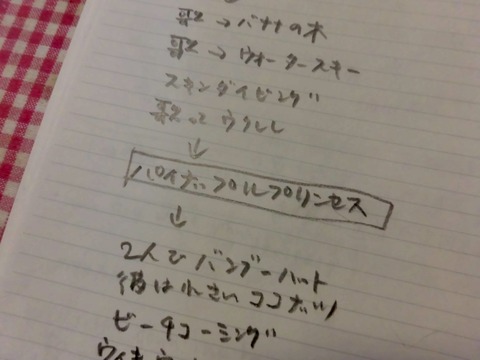 歌→バナナの木
歌→ウォータースキー
スキンダイビング
歌とウクレレ
↓
パイナップルプリンセス
↓
2人でバンブーハット
彼は小さいココナツ
ビーチコーミング